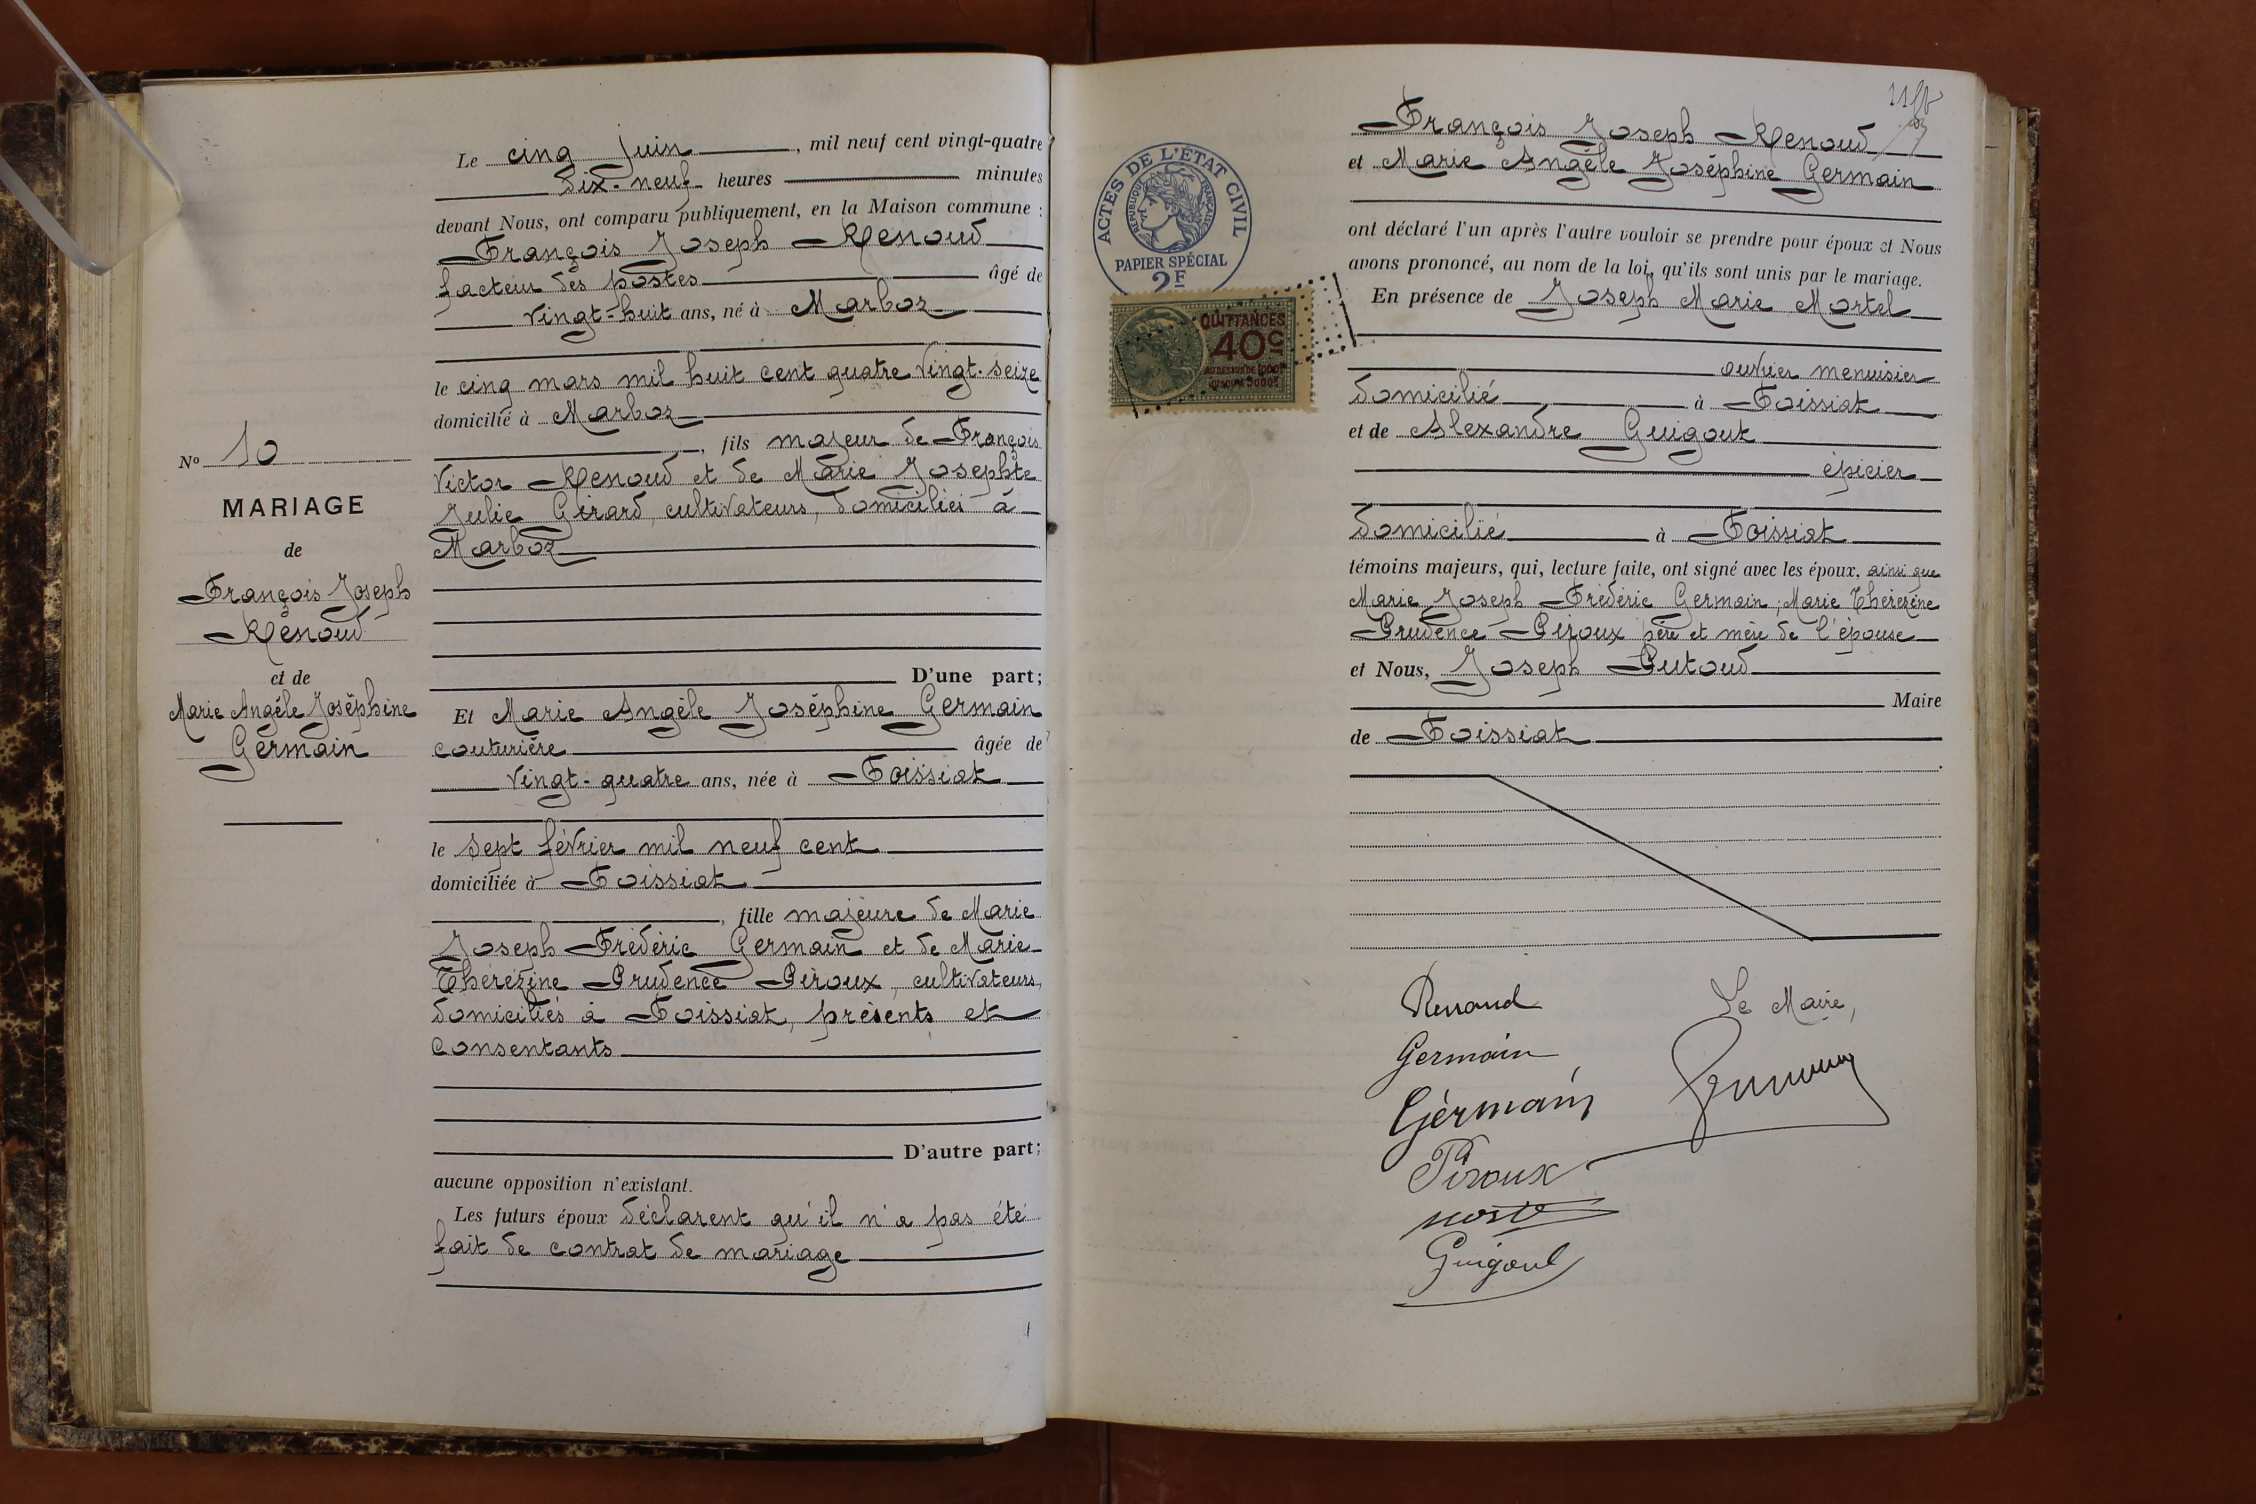 Le cinq juin, mil neuf cent vingt-quatre
dix-neuf heures minutes
devant Nous, ont comparu publiquement, en la Maison commune :
François Joseph Renoud
facteur des postes âgé de
vingt-huit ans, né à Marboz
le cinq mars mil huit cent quatre vingt-seize
domicilié à Marboz
, fils majeur de François
Victor Renoud et de Marie Josephte
Julie Girard, cultivateurs, domiciliés à
Marboz
D'une part;
Et Marie Angèle Joséphine Germain
couturière âgée de
vingt-quatre ans, née à Foissiat
le sept février mil neuf cent
domiciliée à Foissiat
, fille majeure de Marie
Joseph Frédéric Germain et de Marie
Thérézine Prudence Piroux, cultivateurs,
domiciliés à Foissiat, présents et
consentants
D'autre part;
aucune opposition n'existant.
Les futurs époux déclarent qu'il n'a pas été
fait de contrat de mariage
No 10
MARIAGE
de
François Joseph
Renoud
et de
Marie Angèle Joséphine
Germain
François Joseph Renoud
et Marie Angèle Joséphine Germain
ont déclaré l'un après l'autre vouloir se prendre pour époux et Nous
avons prononcé, au nom de la loi, qu'ils sont unis par le mariage.
En présence de Joseph Marie Mortel
ouvrier menuisier
domicilié à Foissiat
et de Alexandre Guigout
épicier
domicilié à Foissiat
témoins majeurs, qui, lecture faite, ont signé avec les époux, ainsi que
Marie Joseph Frédéric Germain, Marie Thérézine
Prudence Piroux père et mère de l'épouse
et Nous, Joseph Putoud
Maire
de Foissiat
ACTES DE L'ÉTAT CIVIL
RÉPUBLIQUE FRANÇAISE
PAPIER SPÉCIAL
2F
QUITTANCES
40c
Renoud
Germain
Germain
Piroux
Guigout
Le Maire,